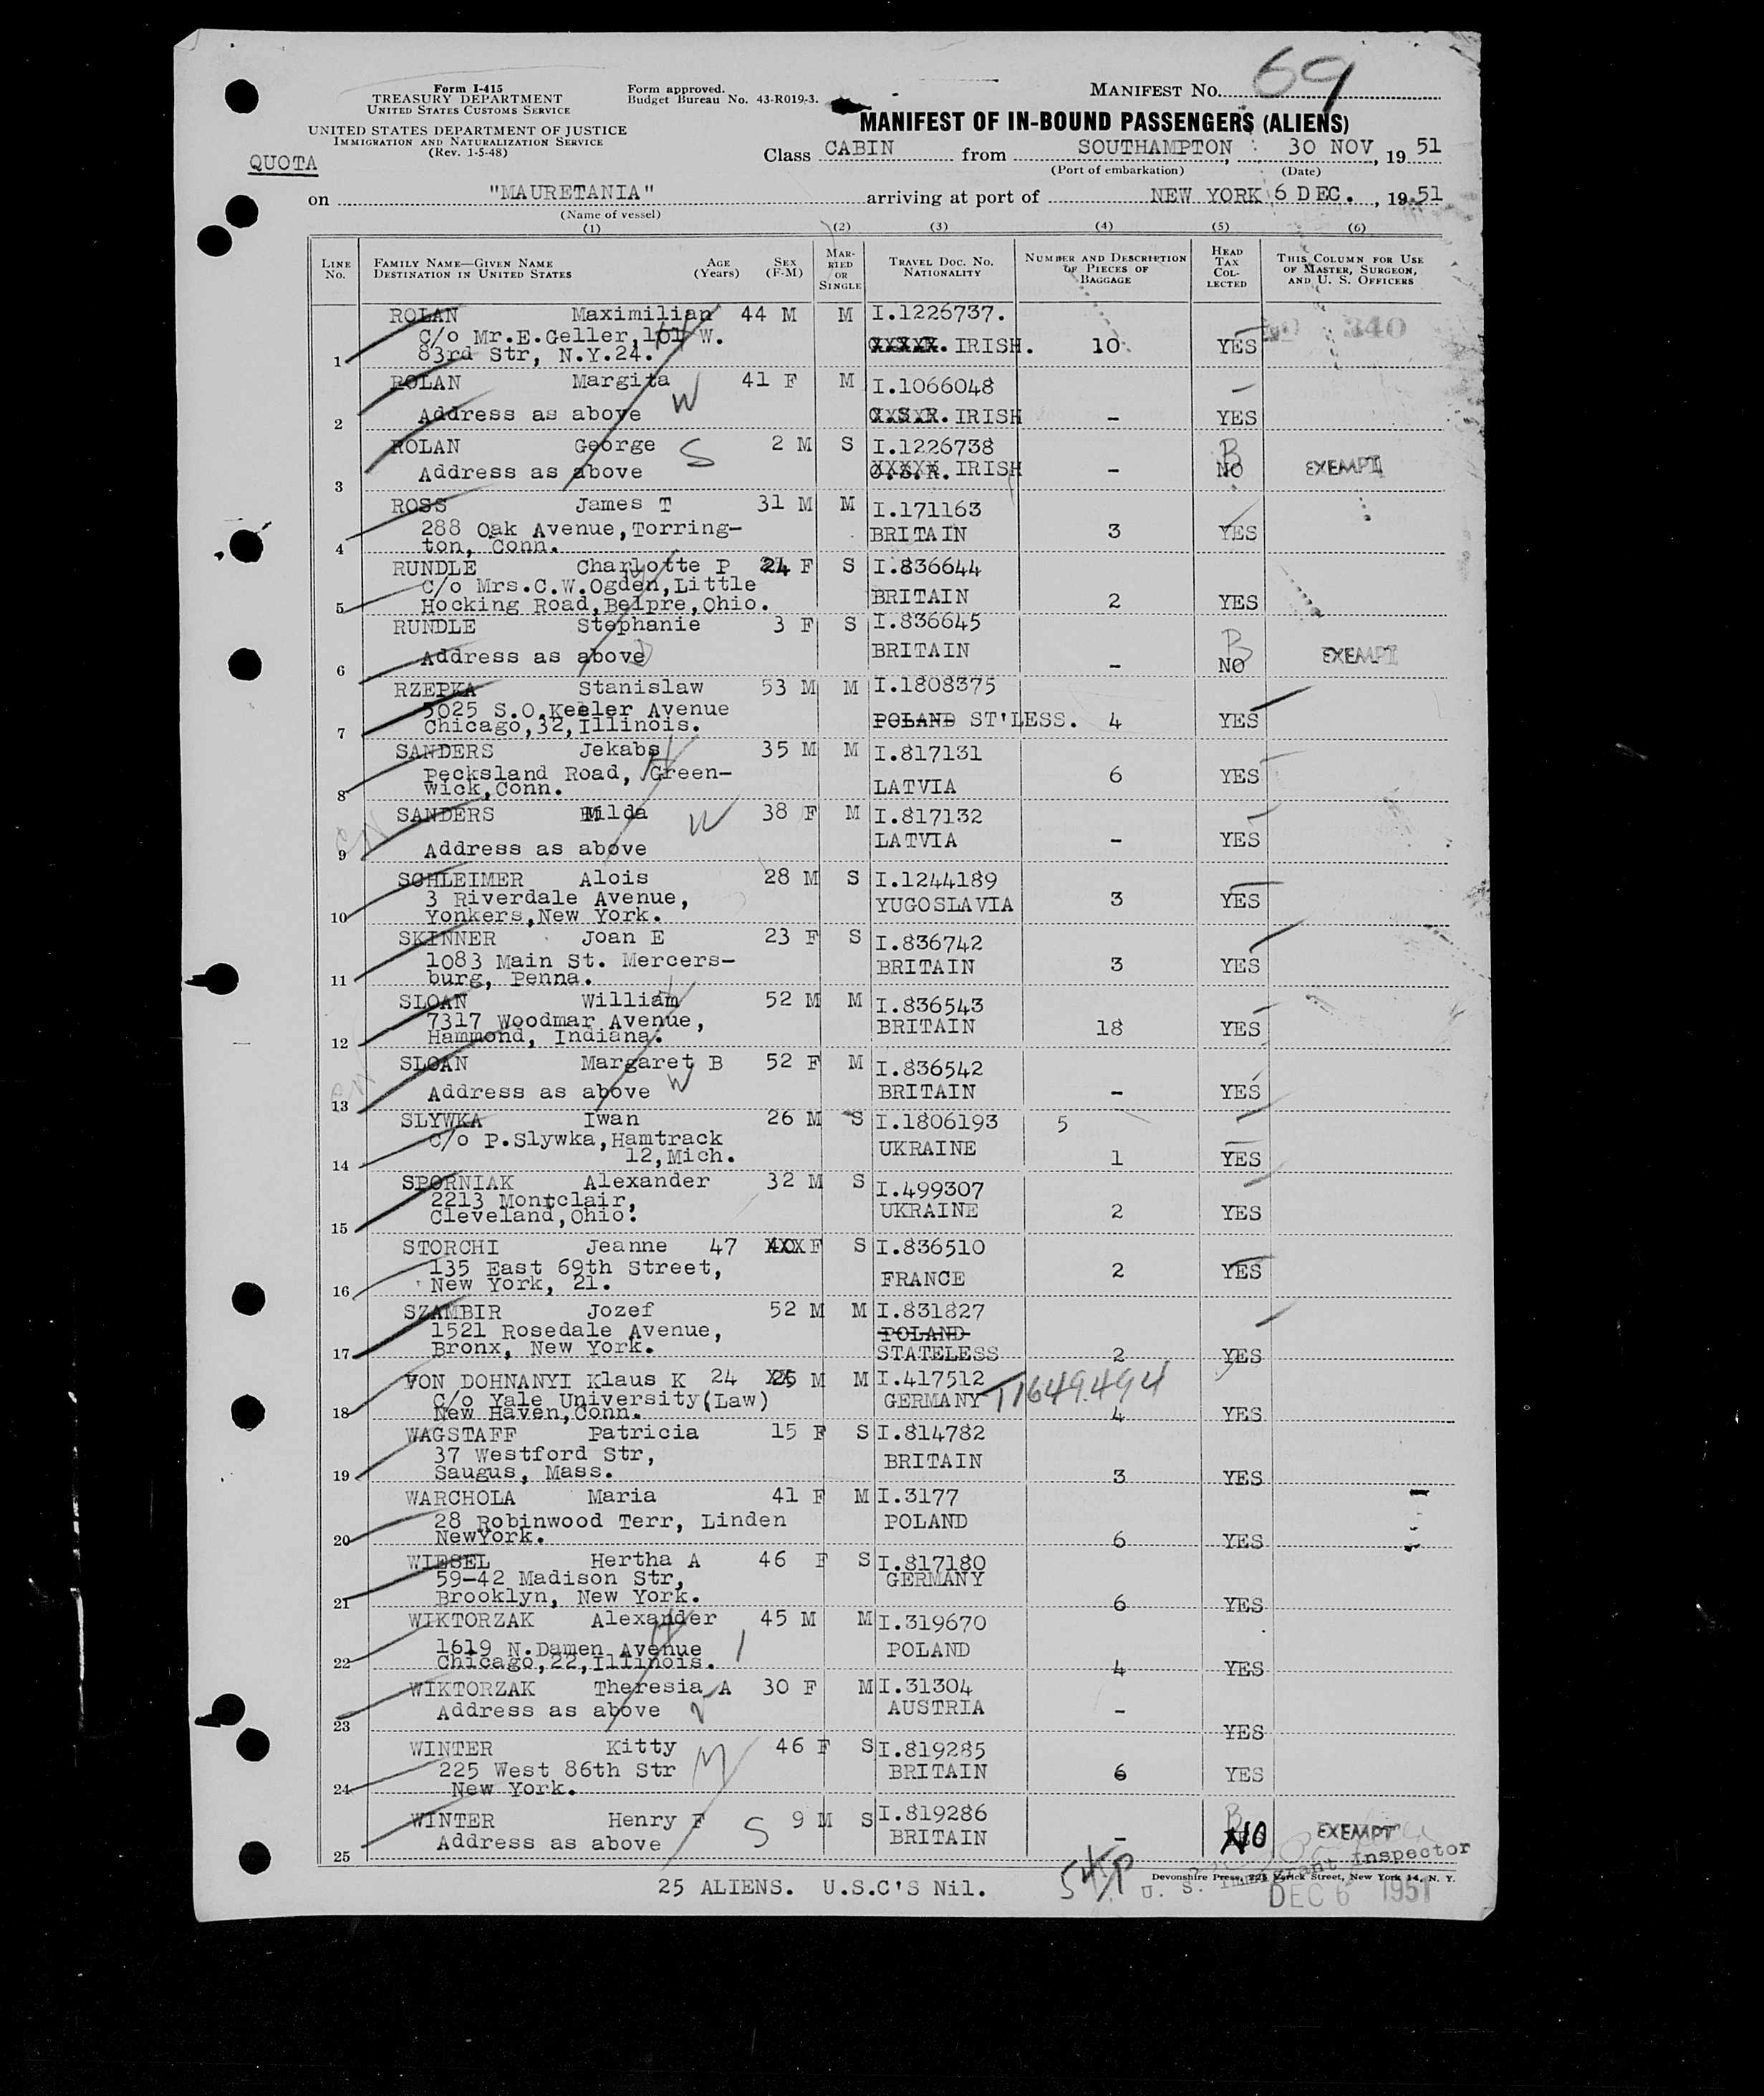 Form I-415
TREASURY DEPARTMENT
UNITED STATES CUSTOMS SERVICE
UNITED STATES DEPARTMENT OF JUSTICE
IMMIGRATION AND NATURALIZATION SERVICE
(Rev. 1-5-48)
Form approved.
Budget Bureau No. 43-R019-3.
MANIFEST No. 69
MANIFEST OF IN-BOUND PASSENGERS (ALIENS)
QUOTA
Class CABIN from SOUTHAMPTON, 30 NOV, 19 51
(Port of embarkation) (Date)
on "MAURETANIA" arriving at port of NEW YORK 6 DEC., 19 51
(Name of vessel)
(1) (2) (3) (4) (5) (6)
LINE No. FAMILY NAME—GIVEN NAME DESTINATION IN UNITED STATES AGE (Years) SEX (F-M) MARRIED OR SINGLE TRAVEL DOC. NO. NATIONALITY NUMBER AND DESCRIPTION OF PIECES OF BAGGAGE HEAD TAX COLLECTED THIS COLUMN FOR USE OF MASTER, SURGEON, AND U. S. OFFICERS
ROLAN Maximilian 44 M M I.1226737.
C/o Mr.E.Geller, W.
1 83rd Str, N.Y.24. IRISH. 10 YES 340
ROLAN Margita 41 F M I.1066048
W
2 Address as above IRISH - YES
ROLAN George S 2 M S I.1226738 B
3 Address as above IRISH - NO EXEMPT
ROSS James T 31 M M I.171163
288 Oak Avenue,Torring-
4 ton, Conn. BRITAIN 3 YES
RUNDLE Charlotte P 24 F S I.836644
C/o Mrs.C.W.Ogden,Little
5 Hocking Road,Belpre,Ohio. BRITAIN 2 YES
RUNDLE Stephanie 3 F S I.836645 B
6 Address as above BRITAIN - NO EXEMPT
RZEPKA Stanislaw 53 M M I.1808375
5025 S.O.Keeler Avenue
7 Chicago,32,Illinois. POLAND ST'LESS. 4 YES
SANDERS Jekabs 35 M M I.817131
Pecksland Road, Green-
8 wick,Conn. LATVIA 6 YES
SANDERS Milda W 38 F M I.817132
9 Address as above LATVIA - YES
SCHLEIMER Alois 28 M S I.1244189
3 Riverdale Avenue,
10 Yonkers,New York. YUGOSLAVIA 3 YES
SKINNER Joan E 23 F S I.836742
1083 Main St. Mercers-
11 burg, Penna. BRITAIN 3 YES
SLOAN William 52 M M I.836543
7317 Woodmar Avenue,
12 Hammond, Indiana. BRITAIN 18 YES
SLOAN Margaret B 52 F M I.836542
W
13 Address as above BRITAIN - YES
SLYWKA Iwan 26 M S I.1806193 5
C/o P.Slywka,Hamtrack
14 12,Mich. UKRAINE 1 YES
SPORNIAK Alexander 32 M S I.499307
2213 Montclair,
15 Cleveland,Ohio. UKRAINE 2 YES
STORCHI Jeanne 47 F S I.836510
135 East 69th Street,
16 New York, 21. FRANCE 2 YES
SZAMBIR Jozef 52 M M I.831827
1521 Rosedale Avenue, POLAND
17 Bronx, New York. STATELESS 2 YES
VON DOHNANYI Klaus K 24 M M I.417512
C/o Yale University(Law) GERMANY T1649494
18 New Haven,Conn. 4 YES
WAGSTAFF Patricia 15 F S I.814782
37 Westford Str,
19 Saugus, Mass. BRITAIN 3 YES
WARCHOLA Maria 41 F M I.3177
28 Robinwood Terr, Linden
20 NewYork. POLAND 6 YES
WIESEL Hertha A 46 F S I.817180
59-42 Madison Str, GERMANY
21 Brooklyn, New York. 6 YES
WIKTORZAK Alexander 45 M M I.319670
1619 N.Damen Avenue
22 Chicago,22,Illinois. POLAND 4 YES
WIKTORZAK Theresia A 30 F M I.31304
23 Address as above AUSTRIA - YES
WINTER Kitty 46 F S I.819285
225 West 86th Str M
24 New York. BRITAIN 6 YES
WINTER Henry F S 9 M S I.819286 B
25 Address as above BRITAIN - NO EXEMPT
25 ALIENS. U.S.C'S Nil.
U. S. Immigrant Inspector
Devonshire Press, 225 Varick Street, New York 14, N. Y.
DEC 6 1951